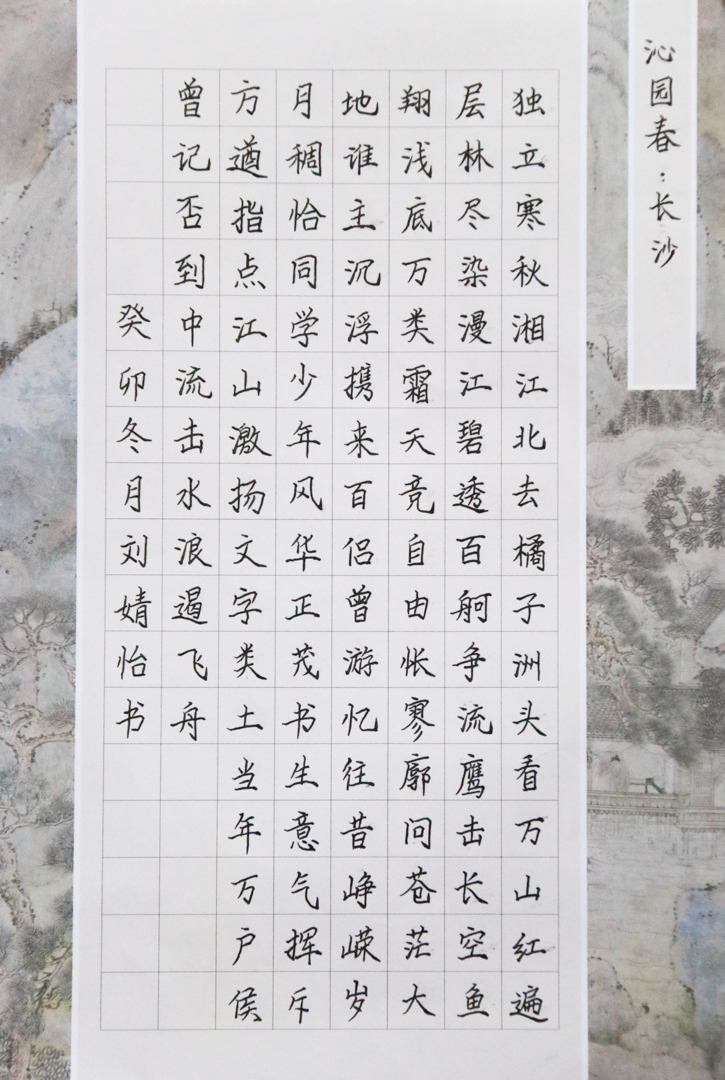 沁园春：长沙
独立寒秋湘江北去橘子洲头看万山红遍
层林尽染漫江碧透百舸争流鹰击长空鱼
翔浅底万类霜天竞自由怅寥廓问苍茫大
地谁主沉浮携来百侣曾游忆往昔峥嵘岁
月稠恰同学少年风华正茂书生意气挥斥
方遒指点江山激扬文字类土当年万户侯
曾记否到中流击水浪遏飞舟
癸卯冬月刘婧怡书